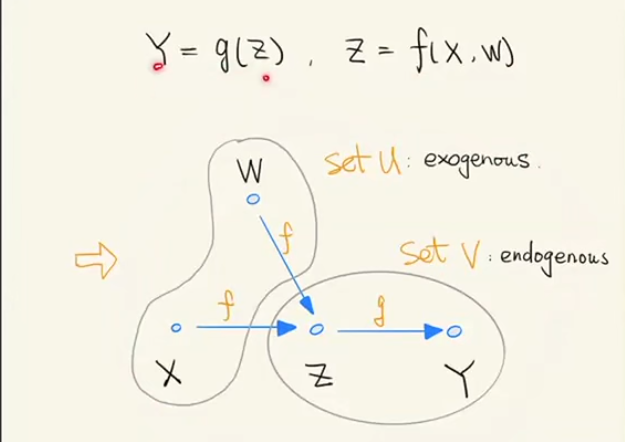 Y = g(Z) , Z = f(X, W)
W
set U : exogenous .
f
set V : endogenous
f
g
X
Z
Y